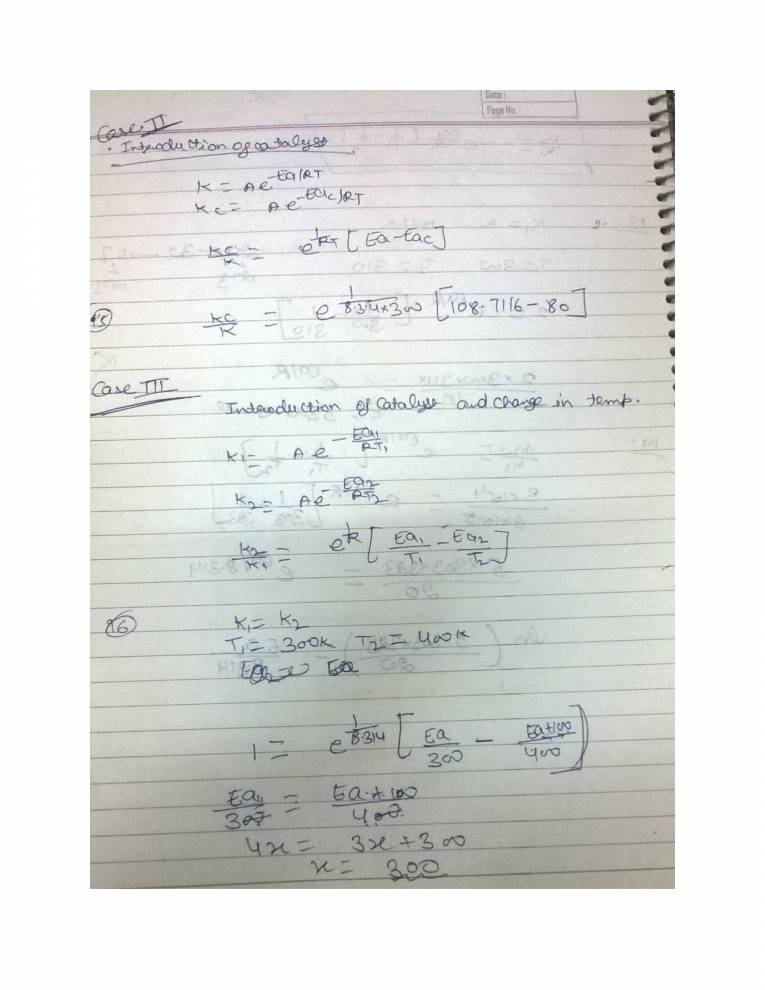 Date :
Page No :
Case II
· Introduction of catalyst
K = Ae^-Ea/RT
Kc = Ae^-Eac/RT
Kc/K = e^1/RT [Ea - Eac]
15
Kc/K = e^1/8.314×300 [108.7116 - 80]
Case III
Introduction of catalyst and change in temp.
K1 = A e^-Ea1/RT1
K2 = A e^-Ea2/RT2
K2/K1 = e^1/R [Ea1/T1 - Ea2/T2]
16
K1 = K2
T1 = 300K T2 = 400K
Ea2 = Ea
1 = e^1/8.314 [Ea/300 - Ea+100/400]
Ea1/300 = Ea+100/400
4x = 3x + 300
x = 300